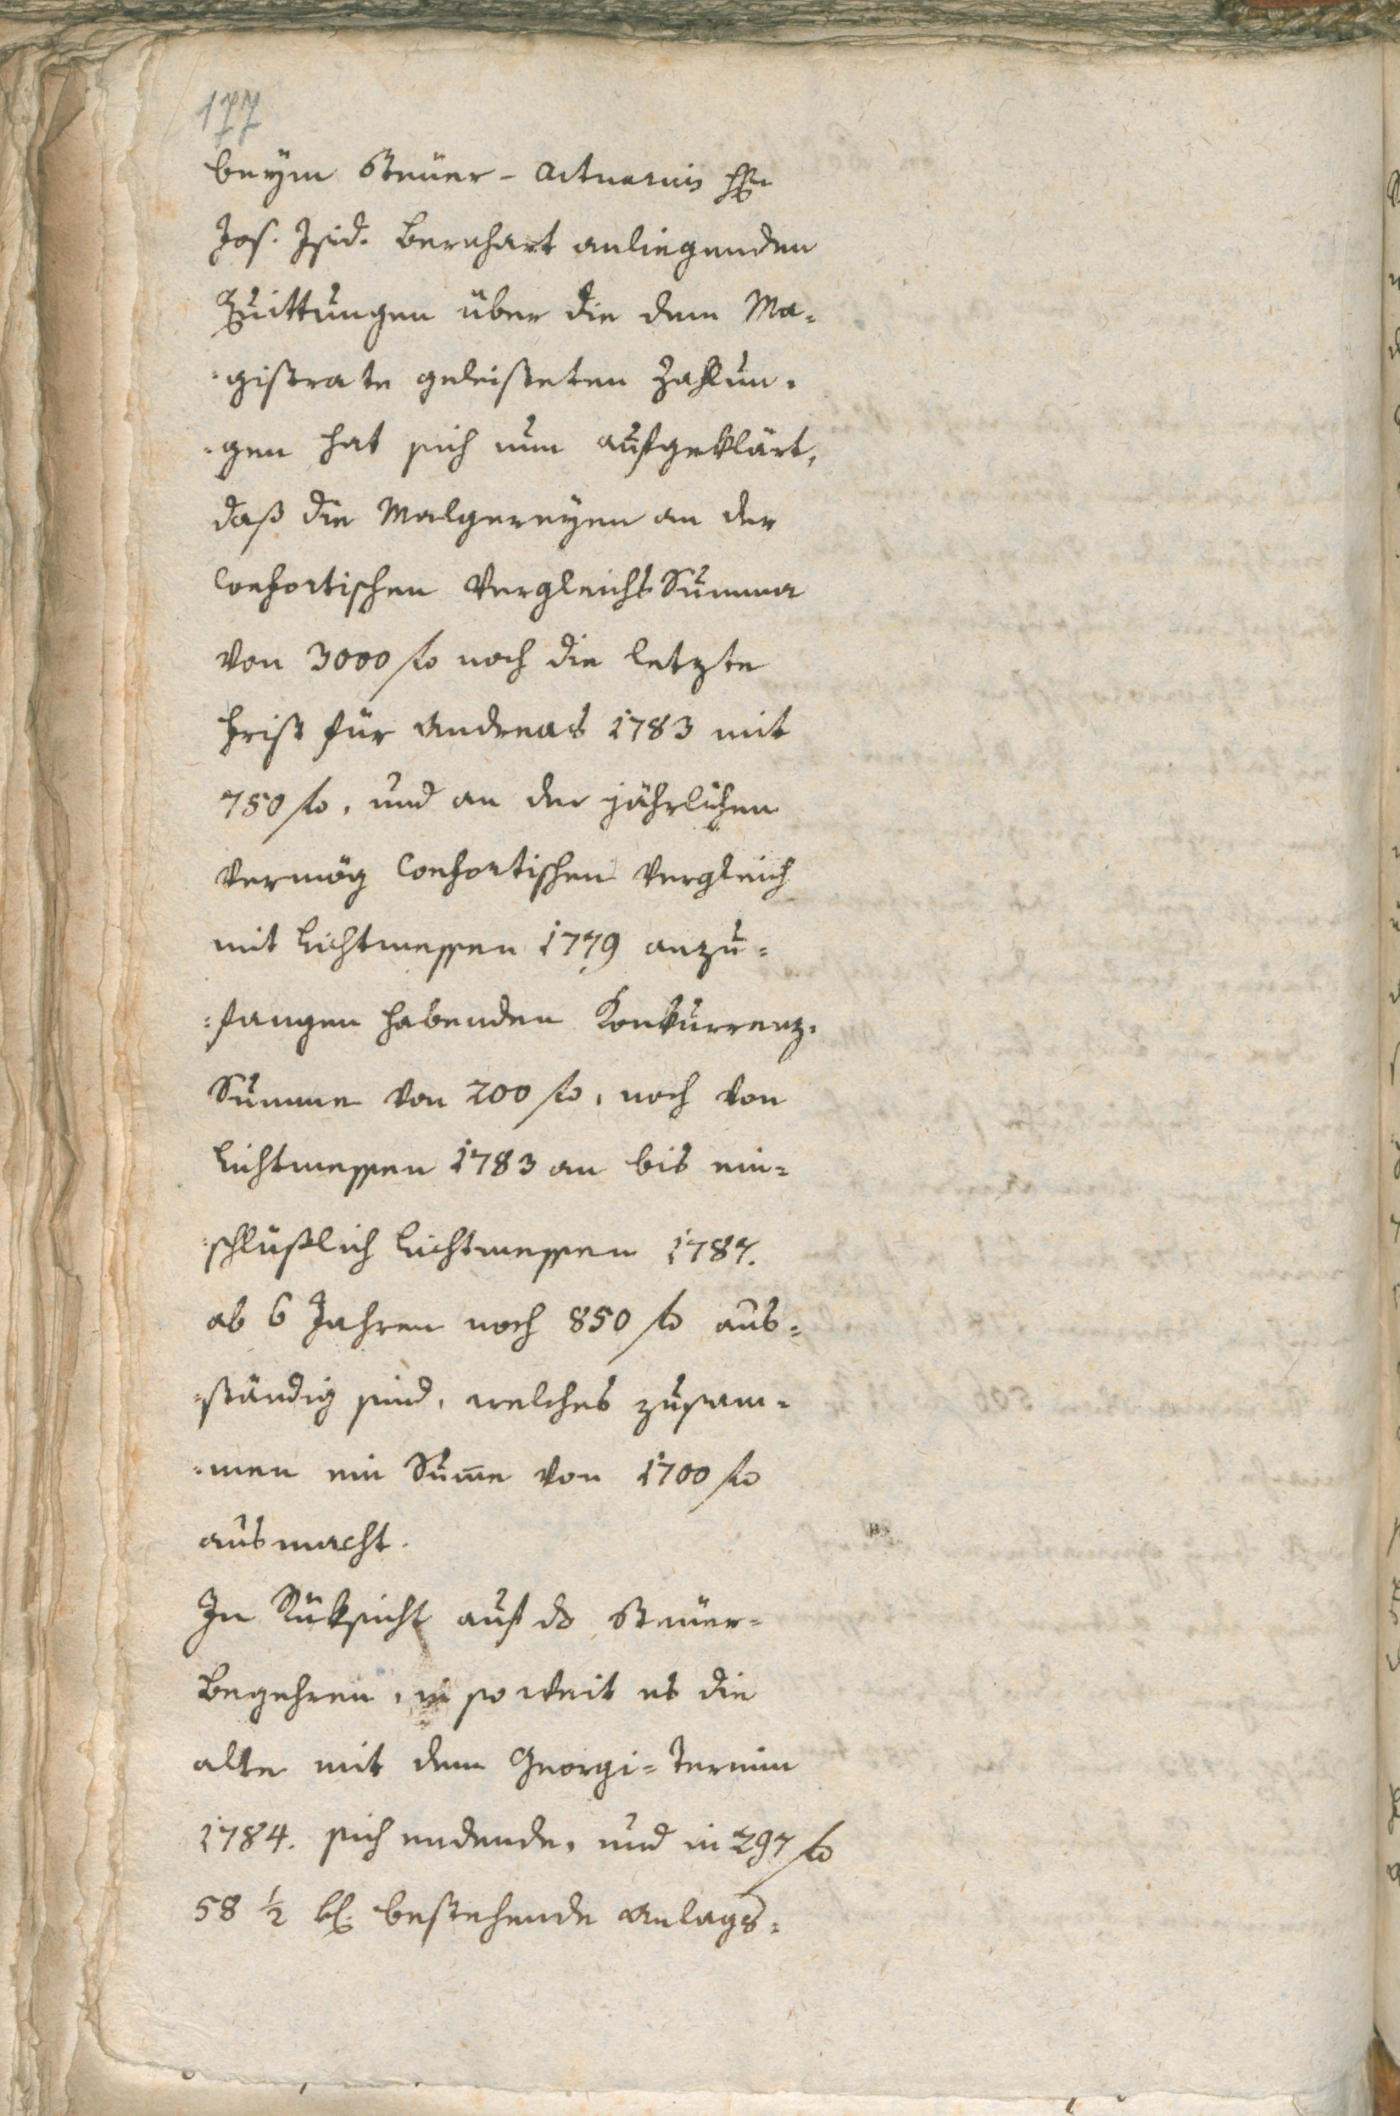 177
beÿm Steüer-Actuarius H:
Jos. Isid. Bernhart anliegenden
Quittungen über die dem Ma=
=gistrate geleisteten Zahlun=
=gen hat sich nun aufgeklärt,
daß die Malgereyen an der
Confortischen Vergleichs Summa
von 3000 fl noch die letzte
Frist für Andreas 1783 mit
750 fl, und an der jährlichen
vermög Confortischen Vergleich
mit Lichtmessen 1779 anzu=
=fangen habenden Konkurrenz=
Summe von 200 fl, noch von
Lichtmessen 1783 an bis ein=
=schlüßlich Lichtmessen 1787.
ab 6 Jahren noch 850 fl aus=
=ständig sind, welches zusam=
=men ein Sum̅e von 1700 fl
ausmacht.
In Rüksicht auf ds Steüer=
Begehren, in so weit es die
alte mit dem Georgi=Termin
1784. sich endende, und in 297 fl
58 ½ kr. bestehende Anlags=